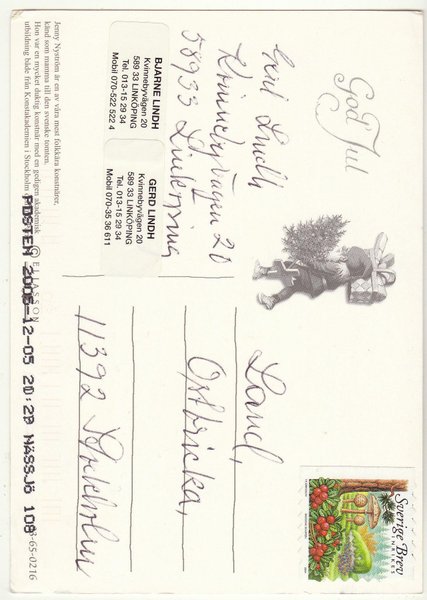 God Jul
Gerd Lindh
Kvinnebyvägen 20
58933 Linköping
BJARNE LINDH
Kvinnebyvägen 20
589 33 LINKÖPING
Tel. 013-15 29 34
Mobil 070-522 522 4
GERD LINDH
Kvinnebyvägen 20
589 33 LINKÖPING
Tel. 013-15 29 34
Mobil 070-35 36 611
Jenny Nyström är en av våra mest folkkära konstnärer,
känd som mamma till den svenske tomten.
Hon var en mycket duktig konstnär med en gedigen akademisk
utbildning både från Konstakademien i Stockholm
© ELIASSON
POSTEN 2006-12-05 20:29 NÄSSJÖ 108
8-65-0216
Sverige Brev
INRIKES
Land,
Ostbricka,
11392 Stockholm